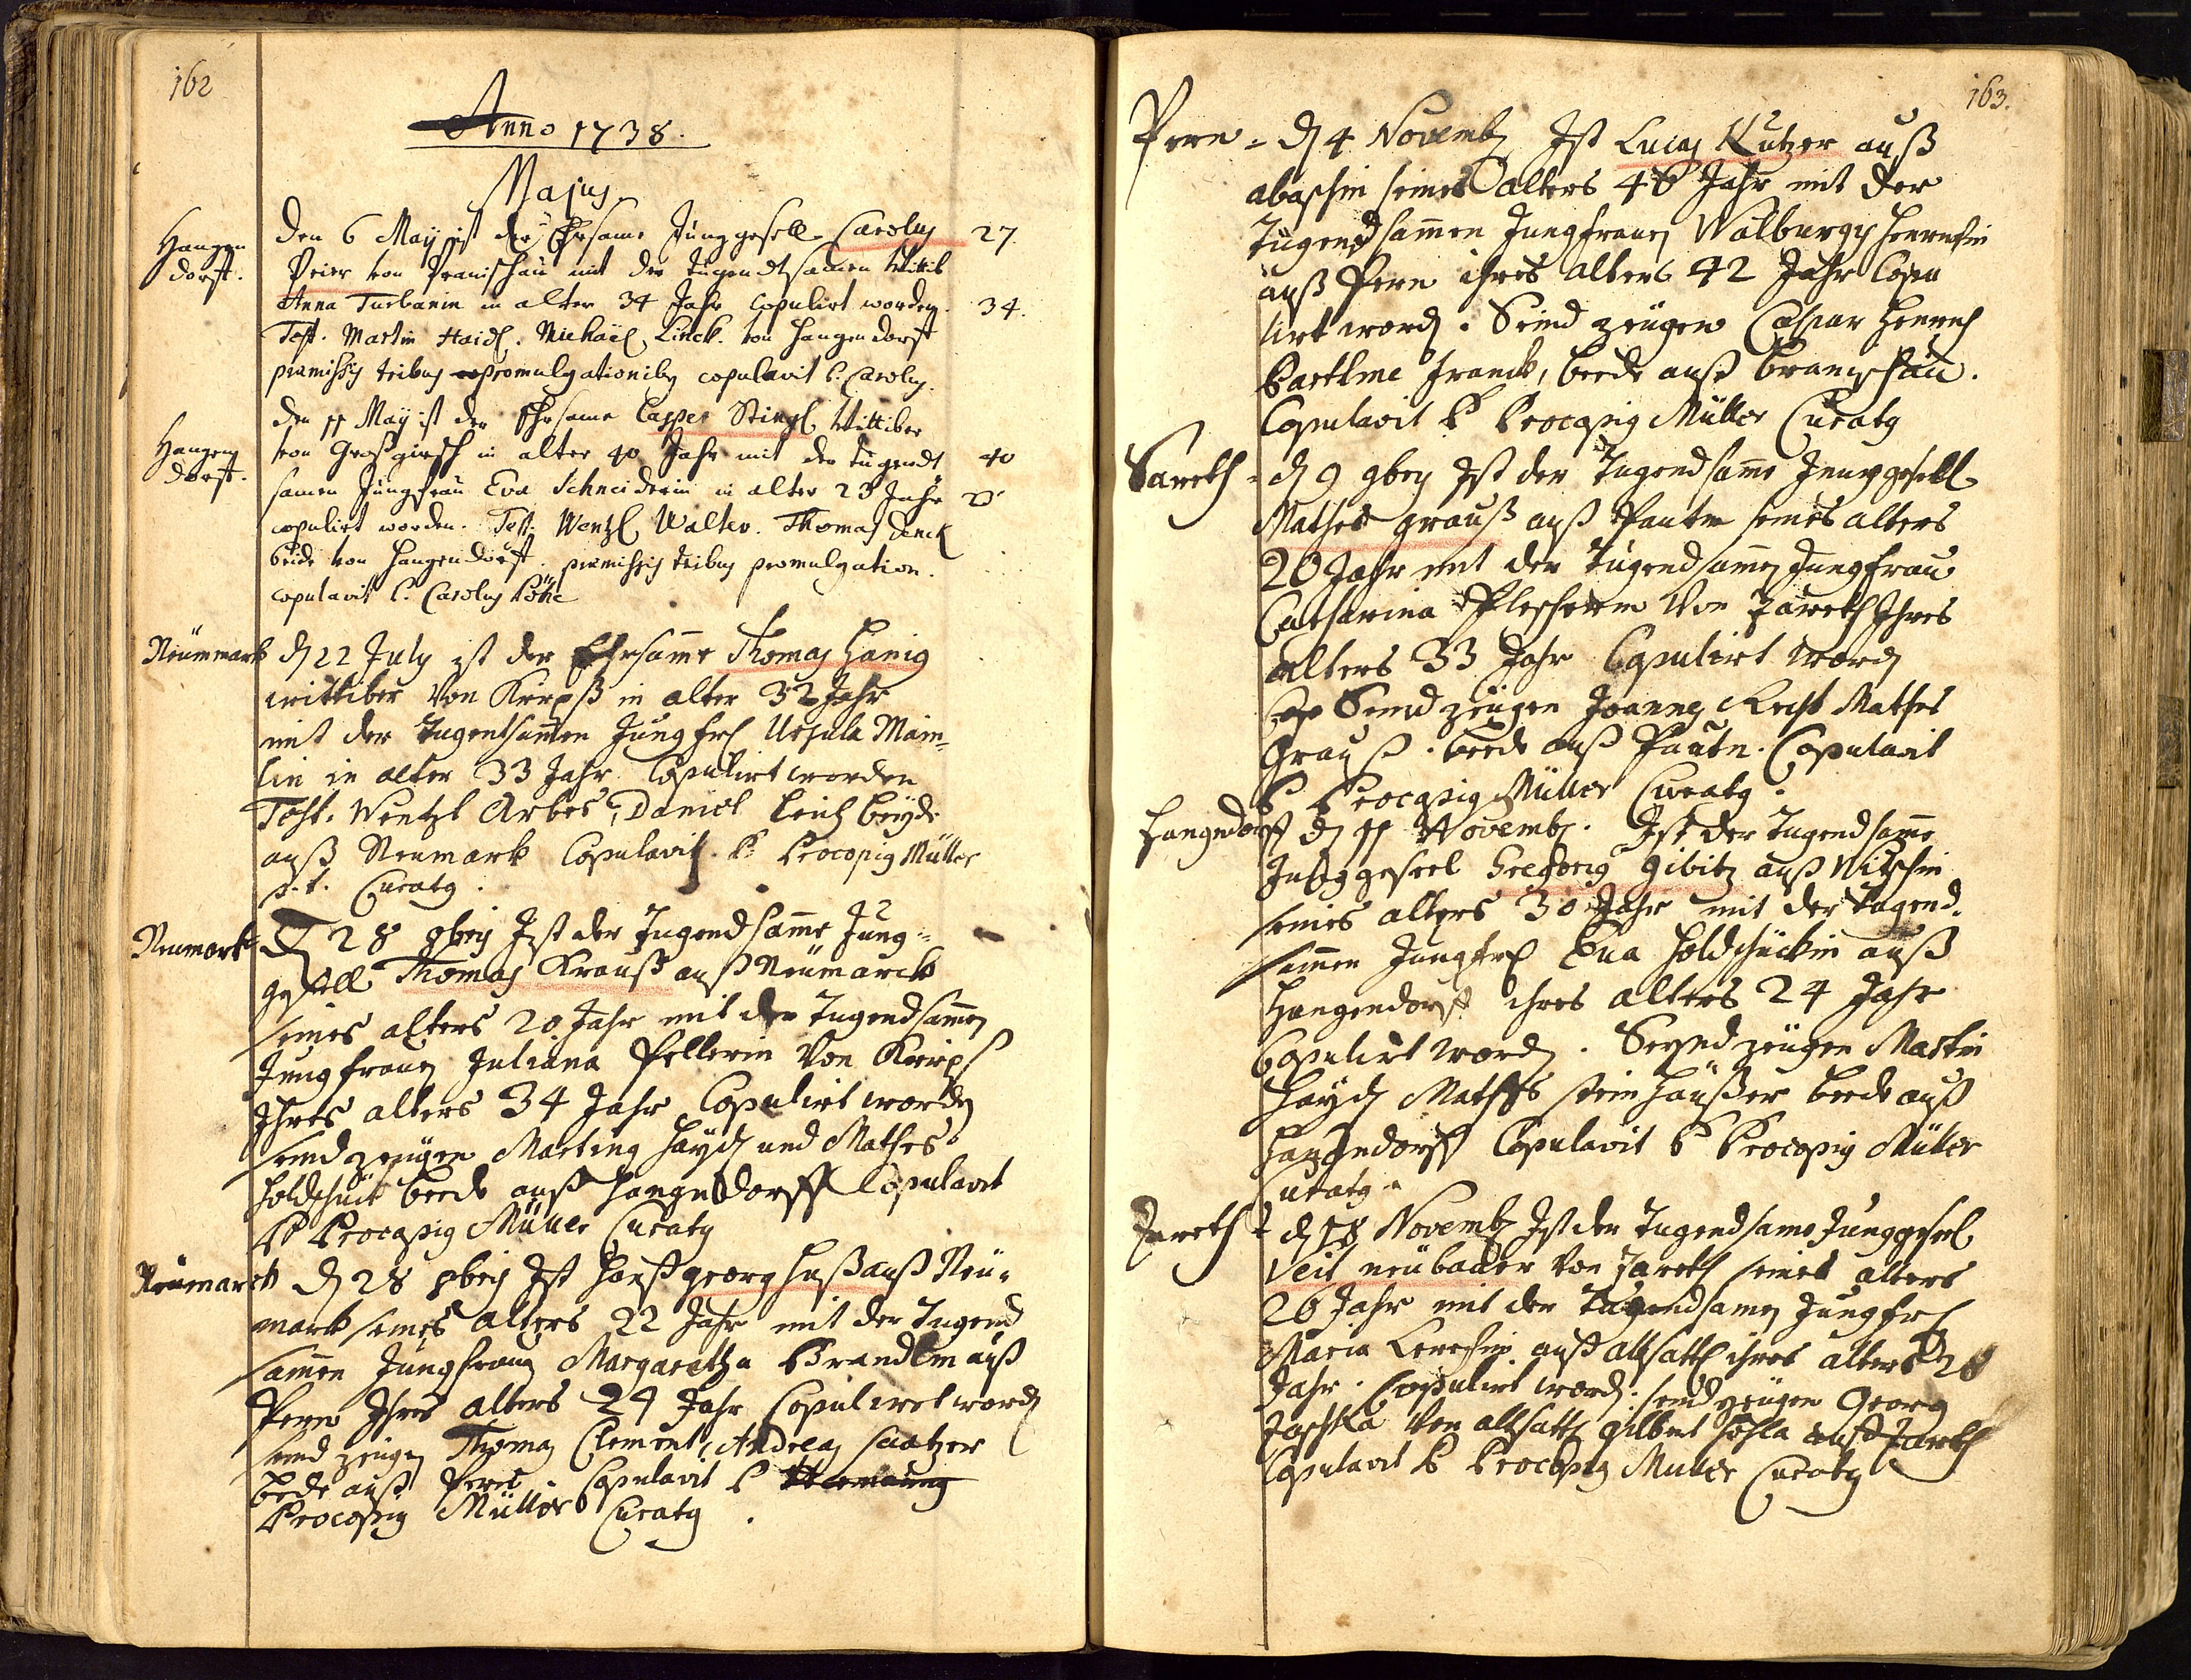 162
Anno 1738.
Majus
Hangen
dorff.
den 6 Maÿ ist der Ehrsame Junggesell Carolus 27.
Peier von Pramischau mit der tugendtsamen Wittib
Anna Turbanin in alter 34 Jahr copulirt worden. 34.
Test. Martin Haidl. Michaël Linck. von Hangendorff
præmissis tribus promulgationibus copulavit P. Carolus.
Hangen
dorff.
den 11 Maÿ ist der Ehrsame Casper Stingl Wittiber
von Großgirsch in alter 40 Jahr mit der tugendt 40
samen Jungfrau Eva Schneiderin in alter 23 Jahr 23
copulirt worden. Test. Wenzl Walter. Thomas Denck
beide von Hangendorff. præmissis tribus promulgation.
copulavit P. Carolus
Neümmark
d 22 July ist der Ehrsame Thomas Hanig
wittiber Von Kirpß in alter 32 Jahr
mit der Tugentsamen Jungfrl Ursula Main-
lin in alter 33 Jahr Copulirt worden
Test. Wentzl Arbes, Daniel Leich beÿde
auß Neumark Copulavit P. Procopig Müller
p.t. Curatg.
Neumark
D 28 8bris Ist der Tugendsame Jung-
gesell Thomas Krauß auß Neümarck
seines alters 20 Jahr mit der Tugendsamen
Jungfrauen Juliana Pellerin Von
Ihres alters 34 Jahr Copulirt worden
seind zeügen Marting Haÿdl und Mathes
Holdschuck beede auß Hangendorff Copulavit
P Procopig Müller Curatg
Neümarck
D 28 8bris Ist Hanß georg Huß auß Neü-
mark seines alters 22 Jahr mit der Tugend
samen Jungfrauen Margaretha Brandlin auß
Pern Ihres alters 24 Jahr Copulirt word
seind zeugen Thomas Clement, Andreas Saatzer
beede auß Pern. Copulavit P
Procopig Müller Curatg.
163.
Pern -
D 4 Novemb Ist Lucas Kutzer auß
abaschin seines alters 40 Jahr mit der
Tugendsamen Jungfrauen Walburgis Henrichin
auß Pern ihres alters 42 Jahr Copu
lirt word. Seind zeugen Caspar Henrich
Bartlme Franck, beede auß bramschau.
Copulavit P Procopig Müller Curatg
Sareth -
D 9 9bris Ist der Tugendsame Junggesell
Mathes grauß auß Pautn seines alters
20 Jahr mit der Tugendsamen Jungfrau
Catharina Plescherin Von zareth Ihres
alters 33 Jahr Copulirt word
Seind zeügen Joannes Mathes
Grauß. beede auß Pautn. Copulavit
P Procopig Müller Curatg.
Hangendorff
D 11 Novemb. Ist der Tugendsame
Junggesell Gregorig gibitz auß Witschin
seines alters 30 Jahr mit der Tugend-
samen Jungfrl Eva Holdschuckin auß
Hangendorff ihres alters 24 Jahr
Copulirt word. Seynd zeügen Martin
Haÿdl Mathes steinhaußer beede auß
Hangendorff Copulavit P Procopig Müller
Curatg.
Zareth -
D 18 Novemb Ist der Tugendsame Junggesel
Veit neübauer Von zareth seines alters
26 Jahr mit der Tugendsamen Jungfrl
Maria Lerchin auß altsattl ihres alters 28
Jahr. Copulirt word. seind zeügen Georg
Joschka Von altsattl gilbert auß zareth
Copulavit P Procopig Muller Curatg